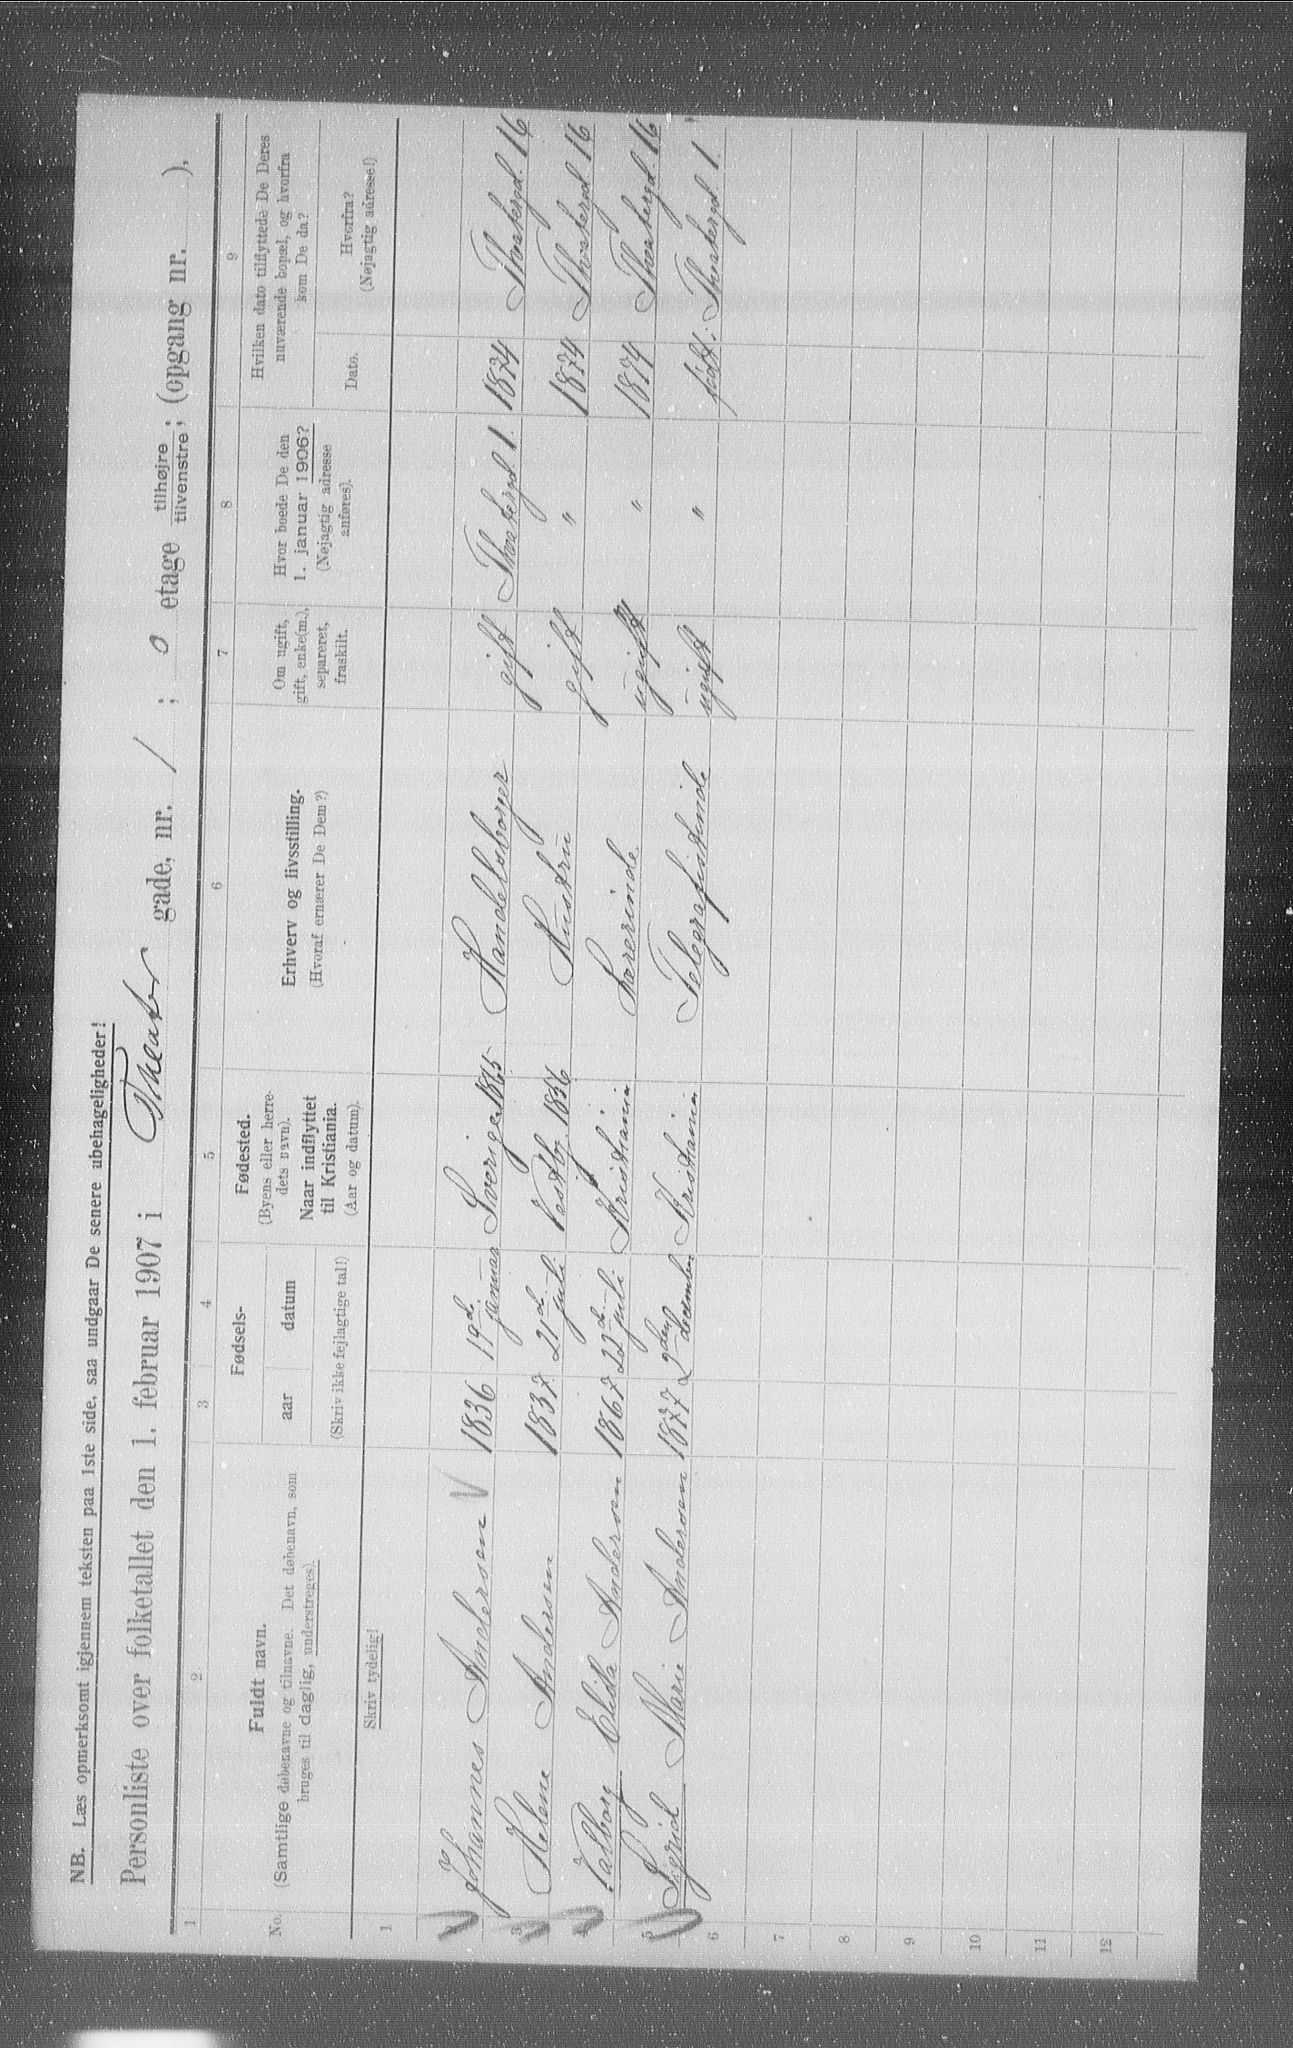 NB. Læs opmerksomt igjennem teksten paa 1ste side, saa undgaar De senere ubehageligheder!
Personliste over folketallet den 1. februar 1907 i Theater gade, nr. 1; 0 etage tilhøjre tilvenstre; (opgang nr. ).
1 2 3 4 5 6 7 8 9
No. Fuldt navn. (Samtlige døbenavne og tilnavne. Det døbenavn, som bruges til daglig, understreges). Skriv tydelig!
Fødsels- aar datum (Skriv ikke fejlagtige tal!)
Fødested. (Byens eller herredets navn). Naar indflyttet til Kristiania. (Aar og datum).
Erhverv og livsstilling. (Hvoraf ernærer De Dem?)
Om ugift, gift, enke(m.), separeret, fraskilt.
Hvor boede De den 1. januar 1906? (Nøjagtig adresse anføres).
Hvilken dato tilflyttede De Deres nuværende bopæl, og hvorfra kom De da? Dato. Hvorfra? (Nøjagtig adresse!)
1
2 Johannes Andersen V 1836 19de januar Sverige 1865 Handelsborger gift Theatergd 1. 1874 Theatergd. 16
3 Helene Andersen 1837 21de juli Vestby. 1856 Hustru gift " 1874 Theatergd 16
4 Valborg Elida Andersen 1867 22de juli Kristiania Lærerinde ugift " 1874 Theatergd. 16
5 Sigrid Marie Andersen 1877 2den december Kristiania Telegrafistinde ugift " født. Theatergd 1.
6
7
8
9
10
11
12